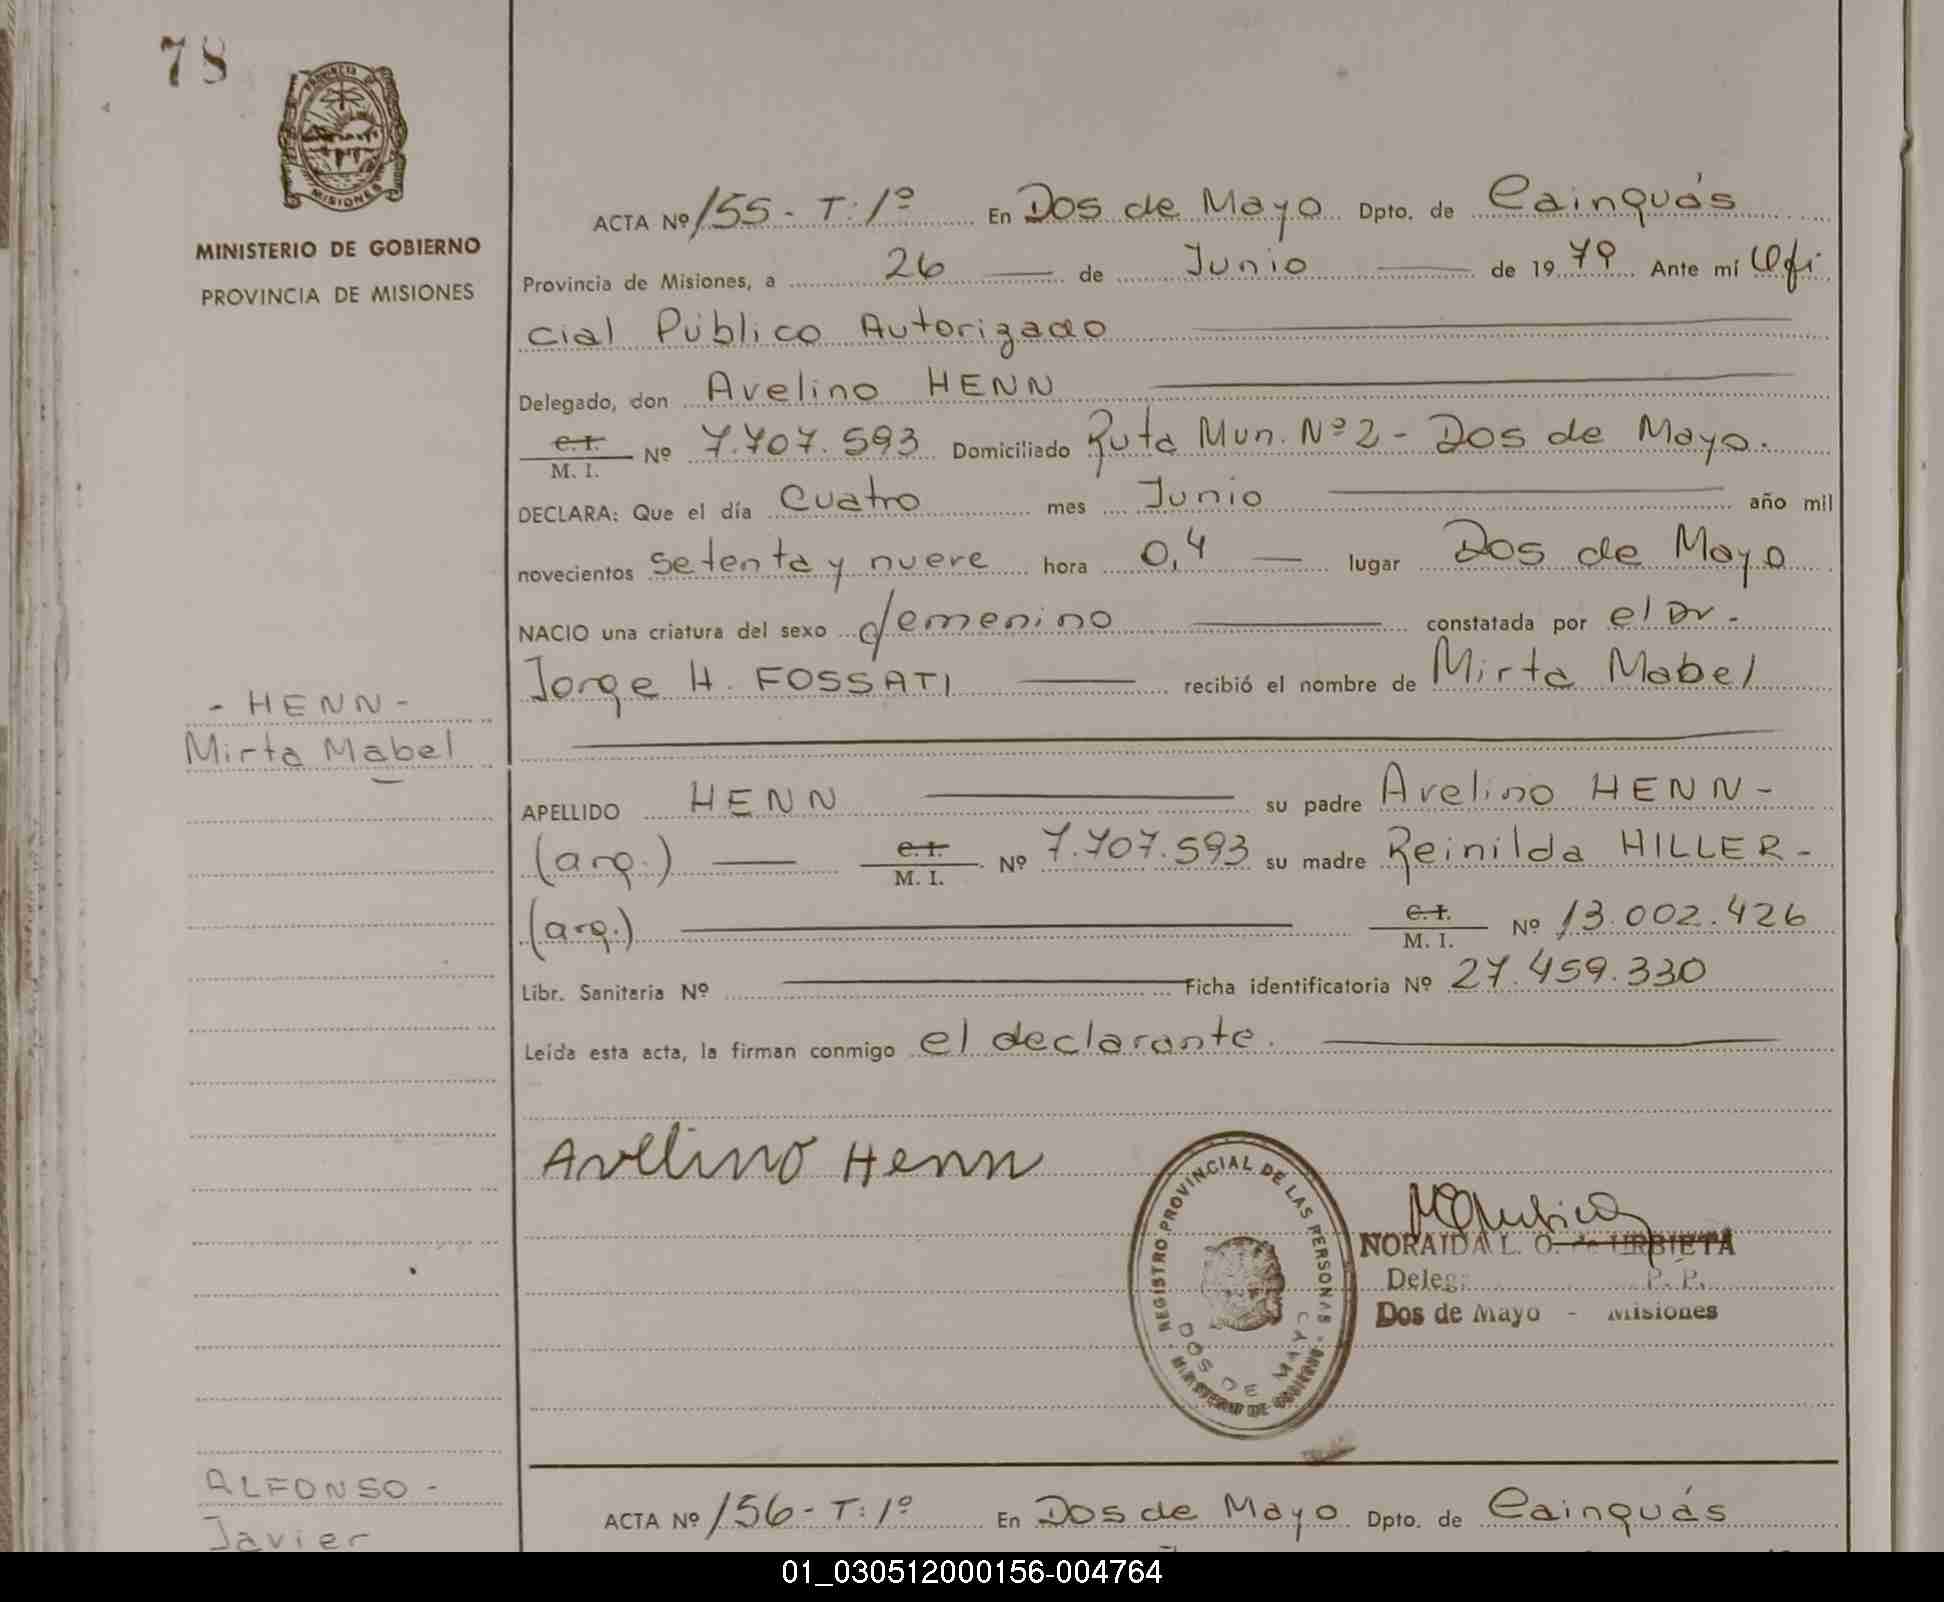 78
PROVINCIA DE
MISIONES
MINISTERIO DE GOBIERNO
PROVINCIA DE MISIONES
ACTA Nº 155 - T: 1º En Dos de Mayo Dpto. de Cainguás
Provincia de Misiones, a 26 — de Junio — de 1979 Ante mí Ofi
cial Público Autorizado
Delegado, don Avelino HENN
C. I.
M. I. Nº 7.707.593 Domiciliado Ruta Mun. Nº 2 - Dos de Mayo.
DECLARA: Que el día Cuatro mes Junio — año mil
novecientos setenta y nueve hora 0,4 — lugar Dos de Mayo
NACIO una criatura del sexo femenino — constatada por el Dr.-
Jorge H. FOSSATI — recibió el nombre de Mirta Mabel
- HENN -
Mirta Mabel
APELLIDO HENN — su padre Avelino HENN -
(arg.) — C. I.
M. I. Nº 7.707.593 su madre Reinilda HILLER -
(arg.) — C. I.
M. I. Nº 13.002.426
Libr. Sanitaria Nº — Ficha identificatoria Nº 27.459.330
Leída esta acta, la firman conmigo el declarante.
Avelino Henn
REGISTRO PROVINCIAL DE LAS PERSONAS
DOS DE MAYO
MINISTERIO DE GOBIERNO
NORAIDA L. O. de URBIETA
Deleg. P. P.
Dos de Mayo - Misiones
ALFONSO -
Javier
ACTA Nº 156 - T: 1º En Dos de Mayo Dpto. de Cainguás
01_030512000156-004764